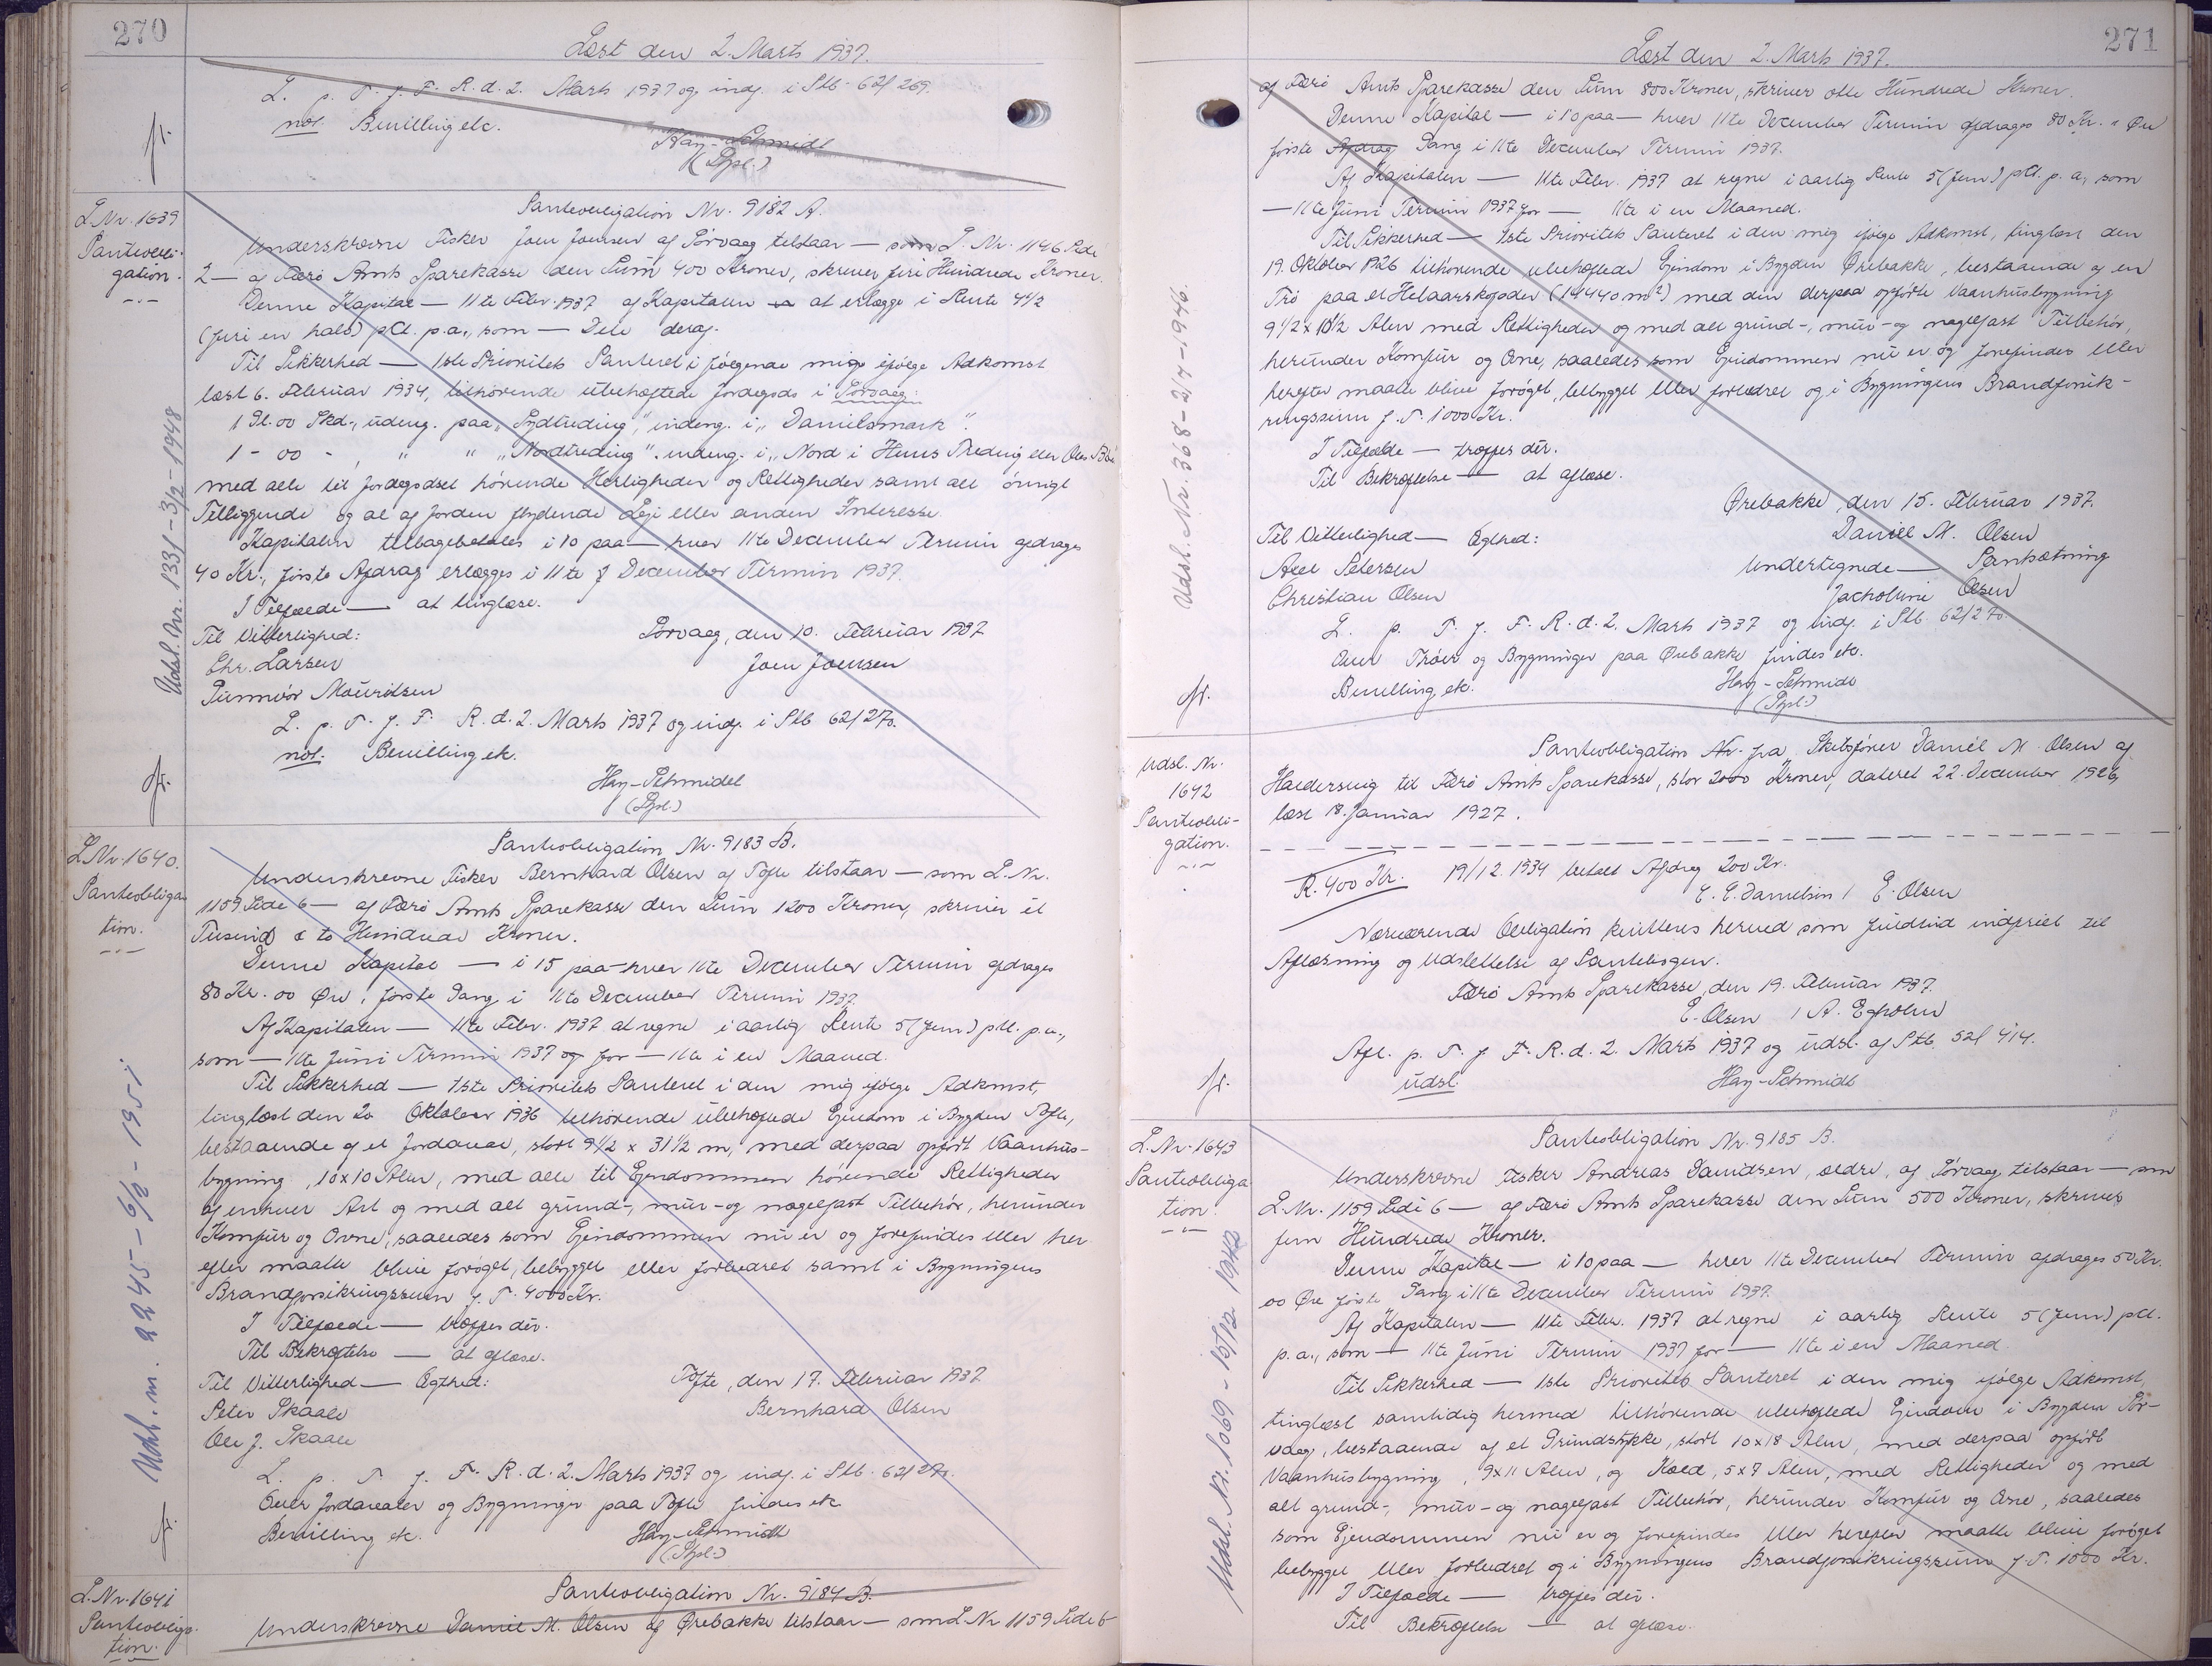 270
Læst den 2. Marts 1937.
L. p. T. f. F. R. d. 2. Marts 1937 og indf. i Ptb. 62/269.
not. Bevilling etc.
Hay-Schmidt
(Sgnl.)
fr.
L.Nr. 1639
Pantobli-
gation.
Udsl. Nr. 1331-3/2-1948
Panteobligation Nr. 9182 A.
Underskrevne Fisker Joen Joensen af Sørvaag tilstaar — som L. Nr. 1146 Side
2 — af Færø Amts Sparekasse den Sum 400 Kroner, skriver fire Hundrede Kroner.
Denne Kapital — 11te Febr. 1937 af Kapitalen at erlægge i Rente 4 1/2
(fire en halv) pCt. p.a., som — Dele deraf.
Til Sikkerhed — 1ste Prioritets Panteret i følgende mig ifølge Adkomst
læst 6. Februar 1934, tilhørende ubehæftede Jordegods i Sørvaag:
1 Gl. 00 Skd., udeng. paa "Sydtreding", indeng. i "Danielsmark".
1 - 00 - , " " "Nordtreding". indeng. i "Nord i Heims Treding eller Oles Bø"
med alle til Jordegodset hørende Herligheder og Rettigheder samt alt øvrigt
Tilliggende og al af Jorden flydende Leje eller anden Interesse.
Kapitalen tilbagebetales i 10 paa — hver 11te December Termin afdrages
40 Kr., første Afdrag erlægges i 11te December Termin 1937.
I Tilfælde — at tinglæse.
Til Vitterlighed: Sørvaag, den 10. Februar 1937
Chr. Larsen Joen Joensen
Gunnvør Mouritsen
L. p. T. f. F. R. d. 2. Marts 1937 og indf. i Ptb 62/270.
not. Bevilling etc.
Hay-Schmidt
(Sgnl.)
fr.
L.Nr. 1640.
Panteobliga
tion.
Udsl. nr. 2245-6/2-1951
Panteobligation Nr. 9183 B.
Underskrevne Fisker Bernhard Olsen af Tofte tilstaar — som L. Nr.
1159 Side 6 — af Færø Amts Sparekasse den Sum 1200 Kroner, skriver et
Tusind to Hundrede Kroner.
Denne Kapital — i 15 paa hver 11te December Termin afdrages
80 Kr. 00 Øre, første Gang i 11te December Termin 1937.
Af Kapitalen — 11te Febr. 1937 at regne i aarlig Rente 5 (fem) pCt. p.a.,
som — 11te Juni Termin 1937 og for — 11te i en Maaned.
Til Sikkerhed — 1ste Prioritets Panteret i den mig ifølge Adkomst,
tinglæst den 20 Oktober 1936 tilhørende ubehæftede Ejendom i Bygden Tofte,
bestaaende af et Jordareal, stort 9 1/2 x 31 1/2 m, med derpaa opført Vaanhus-
bygning, 10x10 Alen, med alle til Ejendommen hørende Rettigheder
af enhver Art og med alt grund-, mur- og nagelfast Tilbehør, herunder
Komfur og Ovne, saaledes som Ejendommen nu er og forefindes eller her
efter maatte blive forøget, bebygget eller forbedret samt i Bygningens
Brandforsikringssum f. T. 4000 Kr.
I Tilfælde — træffes der.
Til Bekræftelse — at aflæse.
Til Vitterlighed — Ægthed: Tofte, den 17. Februar 1937
Peter Skaale Bernhard Olsen
Ole J. Skaale
L. p. T. f. F. R. d. 2. Marts 1937 og indf. i Ptb. 62/270.
Over Jordarealer og Bygninger paa Tofte findes etc
Bevilling etc. Hay-Schmidt
(Sgnl.)
fr.
L.Nr. 1641
Panteobliga-
tion.
Panteobligation Nr. 9184 B.
Underskrevne Daniel M. Olsen af Ørebakke tilstaar — som L.Nr 1159 Side 6
271
Læst den 2. Marts 1937.
af Færø Amts Sparekasse den Sum 800 Kroner, skriver otte Hundrede Kroner.
Denne Kapital — i 10 paa — hver 11te December Termin afdrages 80 Kr. " Øre
første Afdrag Gang i 11te December Termin 1937.
Af Kapitalen — 11te Febr. 1937 at regne i aarlig Rente 5 (fem) pCt. p. a., som
— 11te Juni Termin 1937 for — 11te i en Maaned.
Til Sikkerhed — 1ste Prioritets Panteret i den mig ifølge Adkomst, tinglæst den
19. Oktober 1926 tilhørende ubehæftede Ejendom i Bygden Ørebakke, bestaaende af en
Trø paa et Helaarskofoder (14440 m²) med den derpaa opførte Vaanhusbygning
9 1/2 x 10 1/2 Alen med Rettigheder og med alt grund-, mur- og nagelfast Tilbehør,
herunder Komfur og Ovne, saaledes som Ejendommen nu er og forefindes eller
herefter maatte blive forøget, bebygget eller forbedret og i Bygningens Brandforsik-
ringssum f. T. 1000 Kr.
I Tilfælde — træffes der.
Til Bekræftelse — at aflæse.
Ørebakke, den 15. Februar 1937.
Til Vitterlighed — Ægthed: Daniel M. Olsen
Axel Petersen Undertegnede — Pantsætning
Christian Olsen Jacobine Olsen
L. p. T. f. F. R. d. 2. Marts 1937 og indf. i Ptb 62/270.
Over Trøer og Bygninger paa Ørebakke findes etc.
Bevilling etc. Hay-Schmidt
(Sgnl.)
fr.
Udsl. Nr. 368-2/7-1946.
Udsl. Nr.
1642
Panteobli-
gation.
Panteobligation Nr. fra Skibsfører Daniel M. Olsen af
Haldersvig til Færø Amts Sparekasse, stor 2000 Kroner, dateret 22. December 1926,
læst 18. Januar 1927.
R. 400 Kr. 19/12 1934 betalt Afdrag 200 Kr.
E. E. Danielsen / E. Olsen
Nærværende Obligation kvitteres herved som fuldtud indfriet til
Aflæsning og Udslettelse af Pantebogen.
Færø Amts Sparekasse, den 19. Februar 1937.
E. Olsen / A. Egholm
Afl. p. T. f. F. R. d. 2. Marts 1937 og udsl. af Ptb. 52/414.
udsl. Hay-Schmidt
fr.
L. Nr. 1643
Panteobliga
tion.
Udsl. Nr. 1069-15/12 1942
Panteobligation Nr. 9185 B.
Underskrevne Fisker Andreas Davidsen, ældre, af Sørvaag tilstaar — som
L.Nr. 1159 Side 6 — af Færø Amts Sparekasse den Sum 500 Kroner, skriver
fem Hundrede Kroner.
Denne Kapital — i 10 paa — hver 11te December Termin afdrages 50 Kr.
00 Øre første Gang i 11te December Termin 1937.
Af Kapitalen — 11te Febr. 1937 at regne i aarlig Rente 5 (fem) pCt.
p. a., som — 11te Juni Termin 1937 for — 11te i en Maaned.
Til Sikkerhed — 1ste Prioritets Panteret i den mig ifølge Adkomst,
tinglæst samtidig hermed tilhørende ubehæftede Ejendom i Bygden Sør-
vaag, bestaaende af et Grundstykke, stort 10x18 Alen, med derpaa opført
Vaanhusbygning, 9x11 Alen, og Kold, 5x7 Alen, med Rettigheder og med
alt grund-, mur- og nagelfast Tilbehør, herunder Komfur og Ovne, saaledes
som Ejendommen nu er og forefindes eller herefter maatte blive forøget
bebygget eller forbedret og i Bygningens Brandforsikringssum f. T. 1000 Kr.
I Tilfælde — træffes der.
Til Bekræftelse — at aflæse.